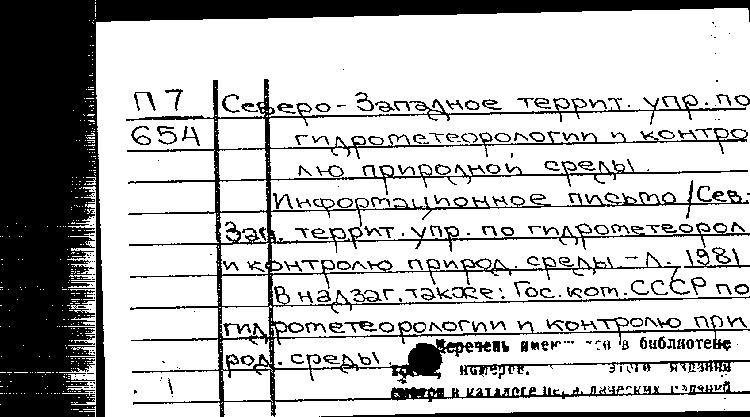 П7 Северо-Западное террит. упр. по
654 гидрометеорологии и контро
лю природной среды.
Информационное письмо / Сев.-
Зап. террит. упр. по гидрометеорол
и контролю природ. среды. - Л., 1981
В надзаг. также: Гос. ком. СССР по
гидрометеорологии и контролю при
род. среды.
Перечень в библиотеке
номеров. этого издания
смотри в каталоге изданий